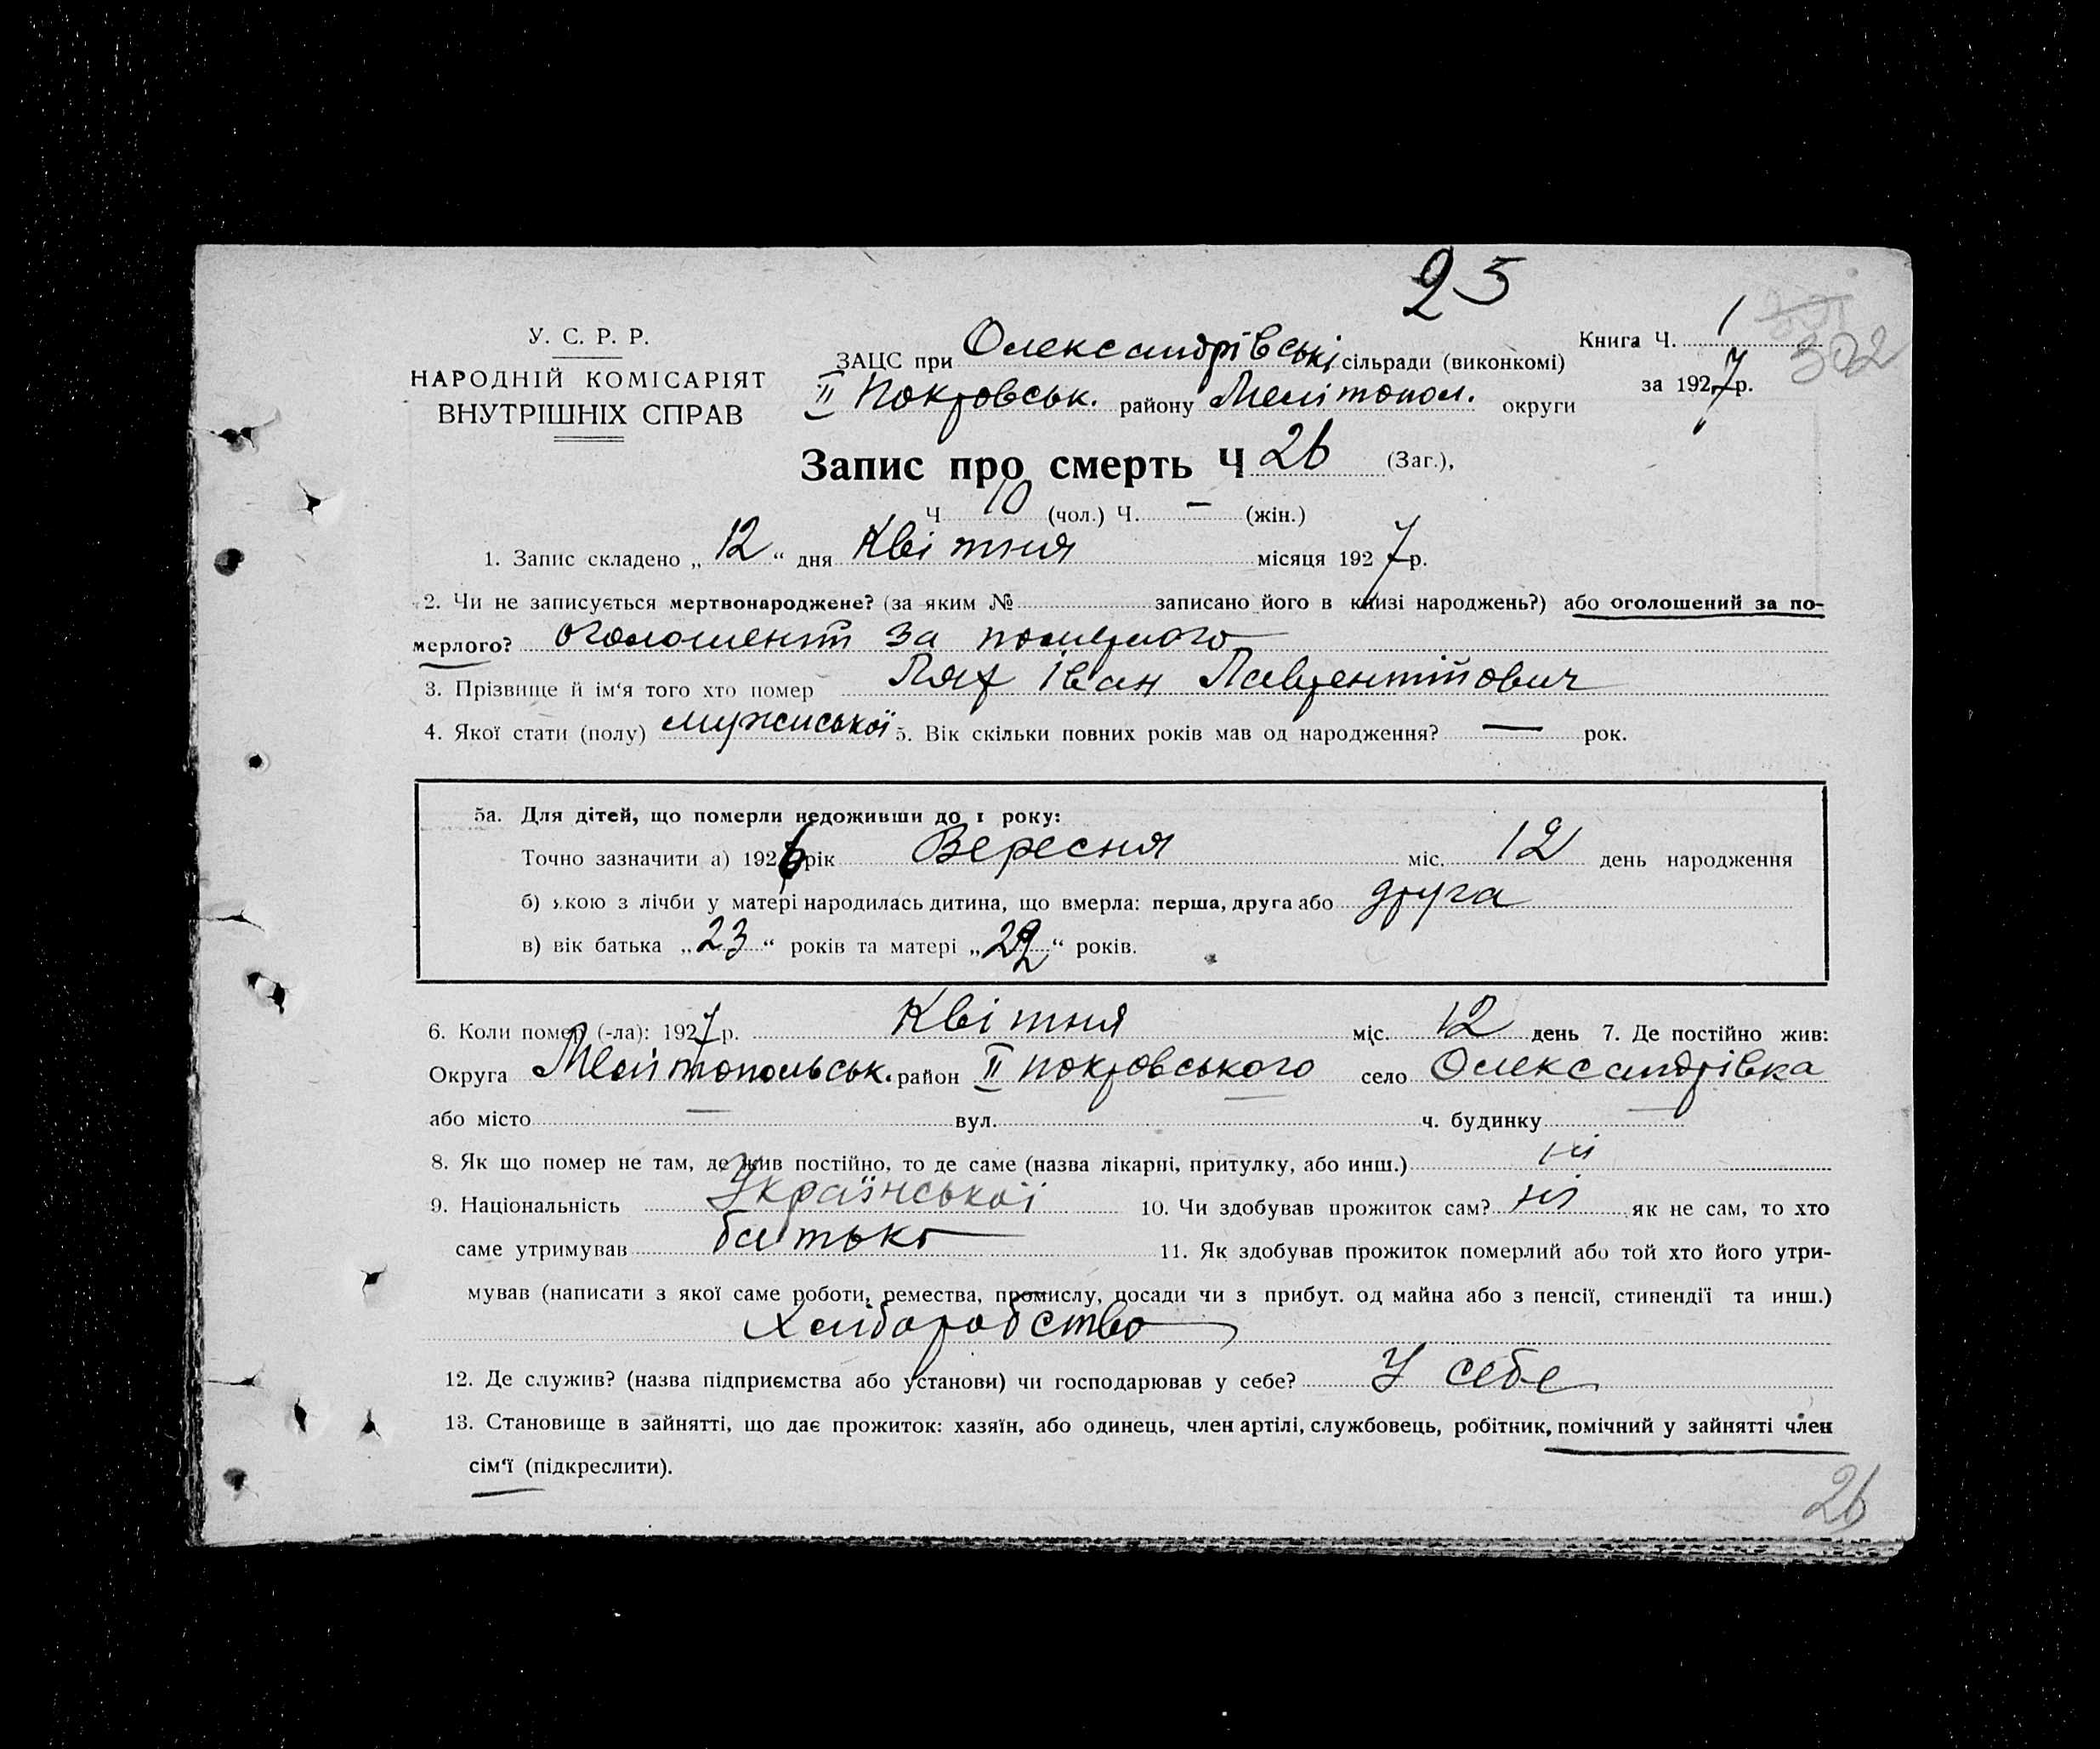 25
У. С. Р. Р.
НАРОДНІЙ КОМІСАРІЯТ
ВНУТРІШНІХ СПРАВ
ЗАЦС при Олександрівські сільради (виконкомі)
II Покровськ. району Мелітопол. округи
Книга Ч. 1
302
за 1927 р.
Запис про смерть Ч 26 (Заг.),
Ч 10 (чол.) Ч. — (жін.)
1. Запис складено „ 12 “ дня Квітня місяця 1927 р.
2. Чи не записується мертвонароджене? (за яким № записано його в книзі народжень?) або оголошений за по-
мерлого? оголошений за померлого
3. Прізвище й ім‘я того хто помер Лях Іван Лаврентійович
4. Якої стати (полу) мужиської 5. Вік скільки повних років мав од народження? — рок.
5а. Для дітей, що померли недоживши до 1 року:
Точно зазначити а) 1926 рік Вересня міс. 12 день народження
б) якою з лічби у матері народилась дитина, що вмерла: перша, друга або друга
в) вік батька „ 23 “ років та матері „ 22 “ років.
6. Коли помер (-ла): 1927 р. Квітня міс. 12 день 7. Де постійно жив:
Округа Мелітопольськ. район II покровського село Олександрівка
або місто — вул. — ч. будинку —
8. Як що помер не там, де жив постійно, то де саме (назва лікарні, притулку, або инш.) ні
9. Національність Української 10. Чи здобував прожиток сам? ні як не сам, то хто
саме утримував батько 11. Як здобував прожиток померлий або той хто його утри-
мував (написати з якої саме роботи, ремества, промислу, посади чи з прибут. од майна або з пенсії, стипендії та инш.)
Хліборобство
12. Де служив? (назва підприємства або установи) чи господарював у себе? У себе
13. Становище в зайнятті, що дає прожиток: хазяїн, або одинець, член артілі, службовець, робітник, помічний у зайнятті член
сім‘ї (підкреслити).
26